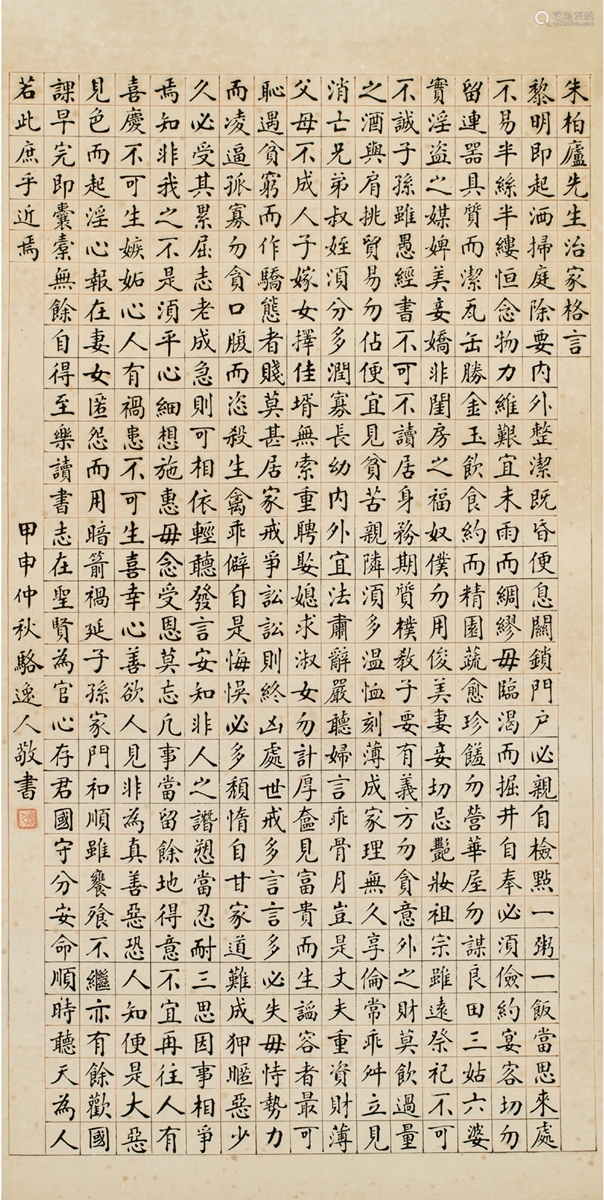 朱柏廬先生治家格言
黎明即起洒掃庭除要內外整潔既昏便息關鎖門戶必親自檢點一粥一飯當思來處
不易半絲半縷恒念物力維艱宜未雨而綢繆毋臨渴而掘井自奉必須儉約宴客切勿
留連器具質而潔瓦缶勝金玉飲食約而精園蔬愈珍饈勿營華屋勿謀良田三姑六婆
實淫盜之媒婢美妾嬌非閨房之福奴僕勿用俊美妻妾切忌艷妝祖宗雖遠祭祀不可
不誠子孫雖愚經書不可不讀居身務期質樸教子要有義方勿貪意外之財莫飲過量
之酒與肩挑貿易勿佔便宜見貧苦親隣須多溫恤刻薄成家理無久享倫常乖舛立見
消亡兄弟叔姪須分多潤寡長幼內外宜法肅辭嚴聽婦言乖骨肉豈是丈夫重資財薄
父母不成人子嫁女擇佳壻無索重聘娶媳求淑女勿計厚奩見富貴而生諂容者最可
恥遇貧窮而作驕態者賤莫甚居家戒爭訟訟則終凶處世戒多言言多必失毋恃勢力
而凌逼孤寡勿貪口腹而恣殺生禽乖僻自是悔悞必多頹惰自甘家道難成狎暱惡少
久必受其累屈志老成急則可相依輕聽發言安知非人之譖愬當忍耐三思因事相爭
焉知非我之不是須平心細想施惠毋念受恩莫忘凡事當留餘地得意不宜再往人有
喜慶不可生嫉妬心人有禍患不可生喜幸心善欲人見非為真善惡恐人知便是大惡
見色而起淫心報在妻女匿怨而用暗箭禍延子孫家門和順雖饔飧不繼亦有餘歡國
課早完即囊橐無餘自得至樂讀書志在聖賢為官心存君國守分安命順時聽天為人
若此庶乎近焉
甲申仲秋駱逸人敬書